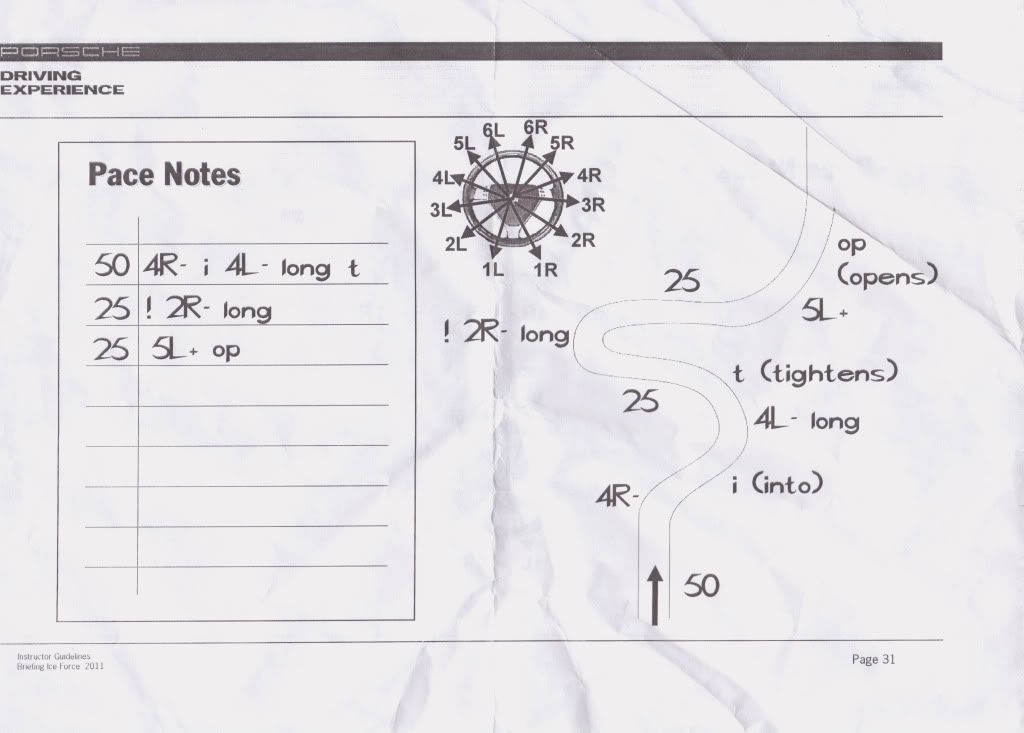 PORSCHE
DRIVING
EXPERIENCE
Pace Notes
50 4R- i 4L- long t
25 ! 2R- long
25 5L+ op
6L 6R
5L 5R
4L 4R
3L 3R
2L 2R
1L 1R
op
(opens)
25
5L+
! 2R- long
t (tightens)
25
4L- long
i (into)
4R-
50
Instructor Guidelines
Briefing Ice Force 2011
Page 31